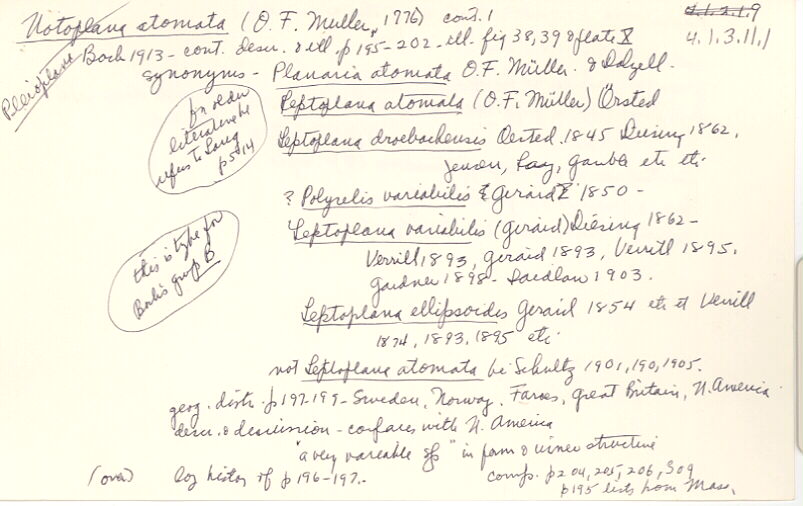 Notoplana atomata (O.F. Müller, 1776) cont. 1
4.1.2.1.9
4.1.3.11.1
Pleioplana
Bock 1913 - cont. descr. & ill. p 195-202 - ill. fig 38, 39 & plate X
synonyms - Planaria atomata O.F. Müller. & Dalyell.
Leptoplana atomata (O.F. Müller) Örsted
for older
literature he
refers to Lang
p 514
Leptoplana droebachensis Oersted. 1845 Diesing 1862,
Jensen, Lang, Gamble etc etc.
? Polycelis variabilis Gerard 1850 -
Leptoplana variabilis (Gerard) Diesing 1862 -
Verrill 1893, Gerard 1893, Verrill 1895,
Gardner 1898 - Laidlaw 1903.
this is type for
Bock's group B
Leptoplana ellipsoides Gerard 1854 etc et Verrill
1874, 1893, 1895 etc.
not Leptoplana atomata bei Schultz 1901, 190, 1905.
geog. distr. p 197-199 - Sweden, Norway, Faroes, Great Britain, N. America
descr. & discussion - compares with N. America
"a very variable sp" in form & inner structure
(over) log history of p 196-197. -
comp. p 204, 205, 206, 309
p 195 lists from Mass.